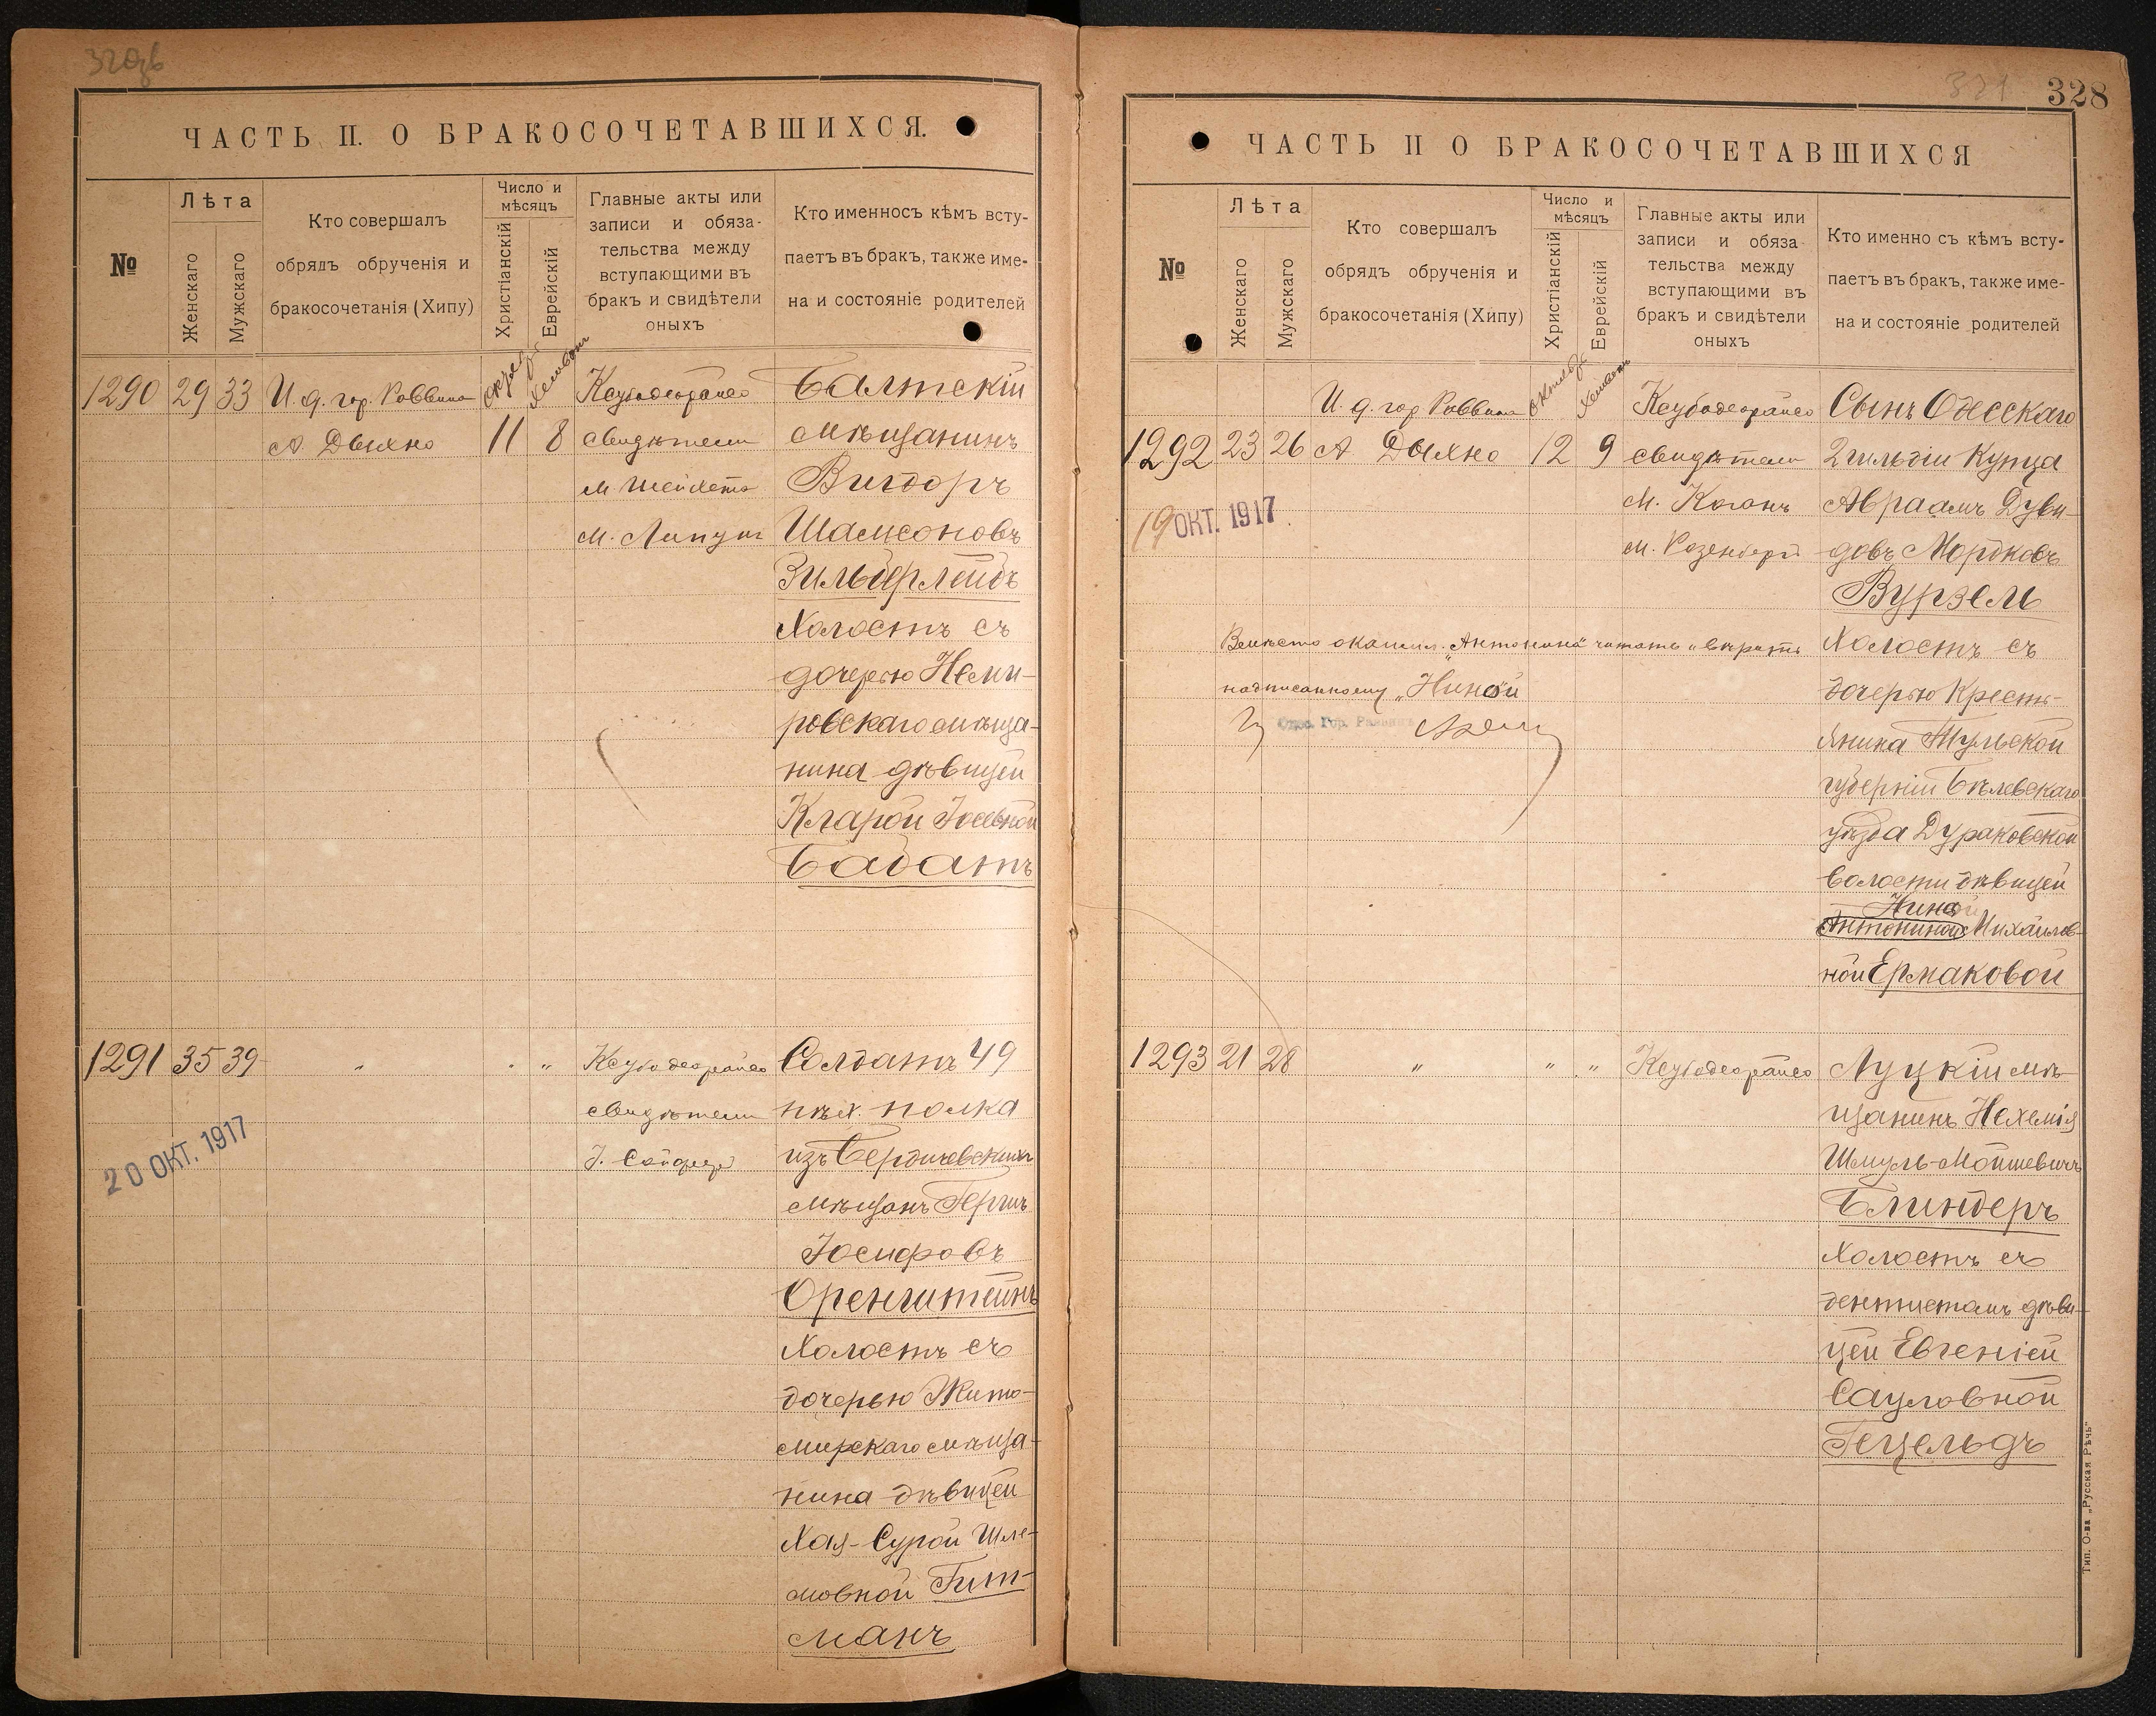 320об
ЧАСТЬ II. О БРАКОСОЧЕТАВШИХСЯ.
№
Лѣта
Женскаго
Мужскаго
Кто совершалъ
обрядъ обрученія и
бракосочетанія (Хипу)
Число и
мѣсяцъ
Христіанскій
Еврейскій
Главные акты или
записи и обяза-
тельства между
вступающими въ
бракъ и свидѣтели
оныхъ
Кто именносъ кѣмъ всту-
паетъ въ бракъ, также име-
на и состояніе родителей
1290 29 33 И. д. гор. Раввина
А. Дыхно
11 8
свидѣтели
Балтскій
мѣщанинъ
Вигдоръ
Шамсоновъ
Зильберлейбъ
Холостъ съ
дочерью Неми-
ровскаго мѣща-
нина дѣвицей
Кларой Іосевной
Бабатъ
1291 35 39 " " "
свидѣтели
20 ОКТ. 1917
Солдатъ 49
пѣх. полка
изъ Бердичевскихъ
мѣщанъ Гершъ
Іосифовъ
Оренштейнъ
Холостъ съ
дочерью Жито-
мирскаго мѣща-
нина дѣвицей
Хая-Сурой Шле-
мовной Гит-
манъ
321 328
ЧАСТЬ II О БРАКОСОЧЕТАВШИХСЯ
№
Лѣта
Женскаго
Мужскаго
Кто совершалъ
обрядъ обрученія и
бракосочетанія (Хипу)
Число и
мѣсяцъ
Христіанскій
Еврейскій
Главные акты или
записи и обяза-
тельства между
вступающими въ
бракъ и свидѣтели
оныхъ
Кто именно съ кѣмъ всту-
паетъ въ бракъ, также име-
на и состояніе родителей
И. д. гор Раввина
1292 23 26 А Дыхно 12 9
октябрь
свидѣтели
М. Коганъ
М. Розенбергъ
19 ОКТ. 1917
Сынъ Одесскаго
2 гильдіи Купца
Авраамъ Дуви-
довъ Мордковъ
Вурзель
Холостъ съ
дочерью Кресть-
яника Тульской
губерніи Бѣлевскаго
уѣзда Дураковской
волости дѣвицей
Ниной
Антониной Михайлов-
ной Ермаковой
надписанному „Ниной
1293 21 28 " " "
Луцкій мѣ-
щанинъ Нехемія
Шмуль-Мошевичъ
Блиндеръ
Холостъ съ
дентистомъ дѣви-
цей Евгеніей
Сауловной
Гецельдъ
Тип. О-ва „Русская Рѣчь"